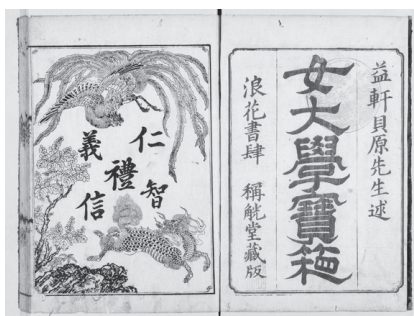 益軒貝原先生述
女大學寶箱
浪花書肆　稱觥堂藏版
仁
義
禮
智
信